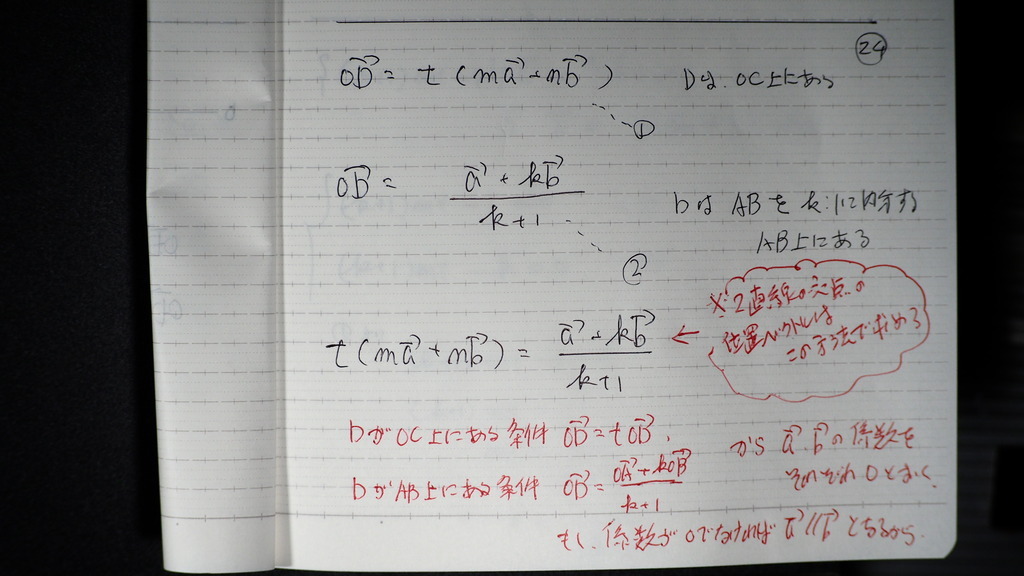 24
OD→ = t ( ma→ + nb→ ) Dは、OC上にある
①
OD→ = (a→ + kb→) / (k+1)
DはABをk:1に内分する
AB上にある
②
※2直線の交点の
位置ベクトルは
この方法で求める
t(ma→ + nb→) = (a→ + kb→) / (k+1) ←
DがOC上にある条件 OD→ = tOD→,
から a→, b→の係数を
DがAB上にある条件 OD→ = (OA→ + kOB→) / (k+1)
それぞれ0とおく、
もし、係数が0でなければ a→//b→となるから、